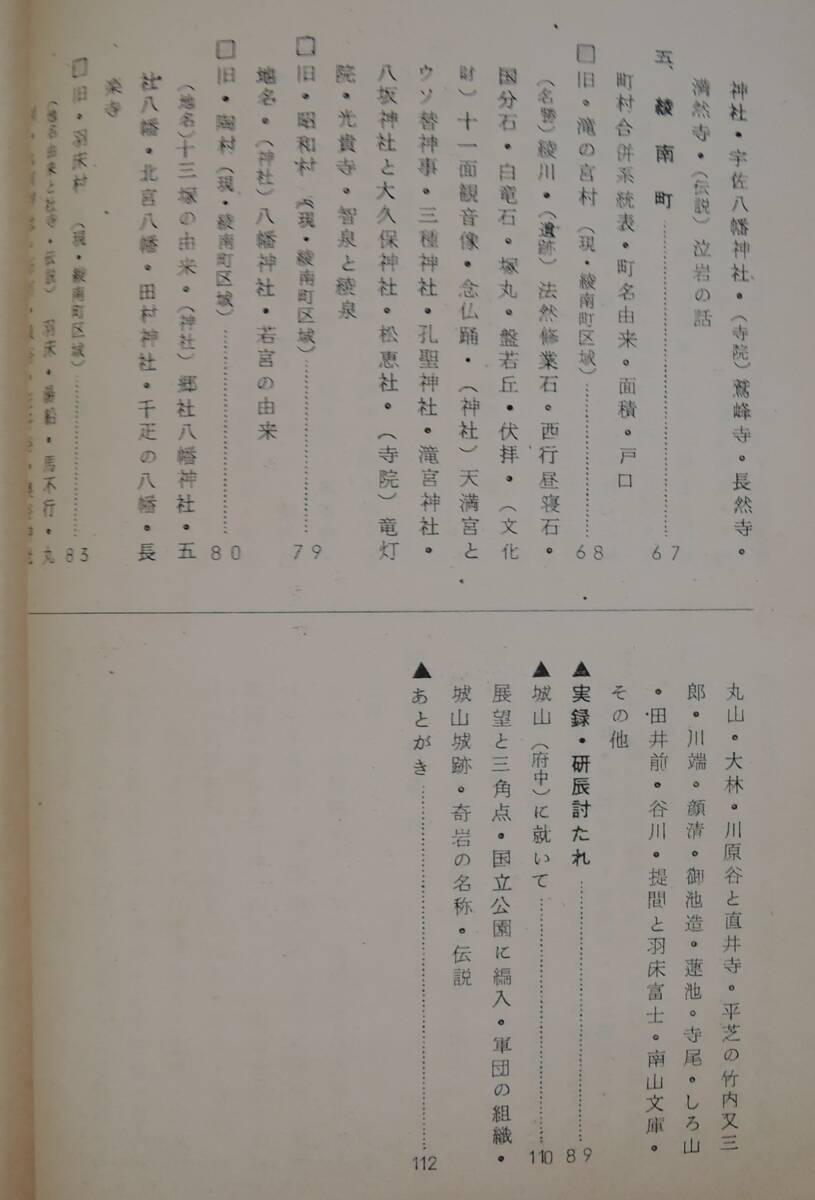 神社・宇佐八幡神社・(寺院)鷲峰寺・長然寺・
満然寺・(伝説)泣岩の話
五、綾南町……………………67
町村合併系統表・町名由来・面積・戸口
□旧・滝の宮村(現・綾南町区域)……………68
(名勝)綾川・(遺跡)法然修業石・西行昼寝石・
国分石・白竜石・塚丸・盤若丘・伏拝・(文化
財)十一面観音像・念仏踊・(神社)天満宮と
ウソ替神事・三種神社・孔聖神社・滝宮神社・
八坂神社と大久保神社・松恵社・(寺院)竜灯
院・光貴寺・智泉と綾泉
□旧・昭和村(現・綾南町区域)……………79
地名・(神社)八幡神社・若宮の由来
□旧・陶村(現・綾南町区域)……………80
(地名)十三塚の由来・(神社)郷社八幡神社・五
社八幡・北宮八幡・田村神社・千疋の八幡・長
楽寺
□旧・羽床村(現・綾南町区域)……………83
(地名由来と社寺・伝説)羽床・湯船・馬不行・丸
丸山・大林・川原谷と直井寺・平芝の竹内又三
郎・川端・顔清・御池造・蓮池・寺尾・しろ山
・田井前・谷川・提間と羽床富士・南山文庫・
その他
▲実録・研辰討たれ……………89
▲城山(府中)に就いて……………110
展望と三角点・国立公園に編入・軍団の組織・
城山城跡・奇岩の名称・伝説
▲あとがき……………112